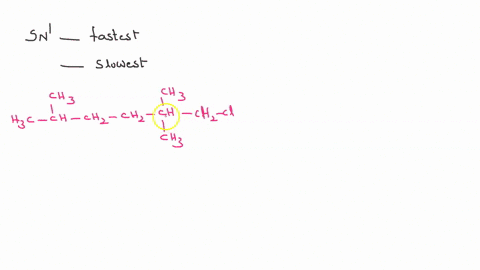 SN1 — fastest
— slowest
CH3 CH3
H3C — CH — CH2 — CH2 — CH — CH2 — Cl
CH3